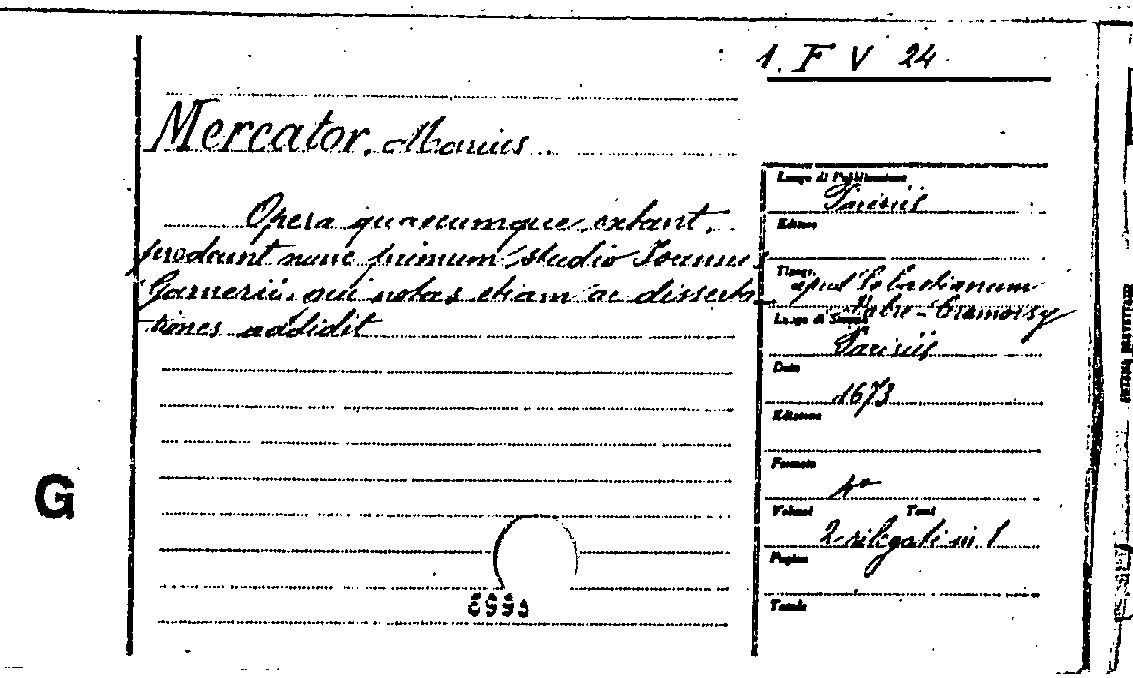 1. F V 24
Mercator, Marius
Opera quaecumque extant,
prodeunt nunc primum studio Joannis
Garnerii, qui notas etiam ac disserta-
tiones addidit
Luogo di Pubblicazione
Parisiis
Editore
Tipogr.
apud Sebastianum
Mabre-Cramoisy
Luogo di Stampa
Parisiis
Data
1673
Edizione
Formato
4°
Volumi Tomi
2 rilegati in 1
Pagine
Tavole
G